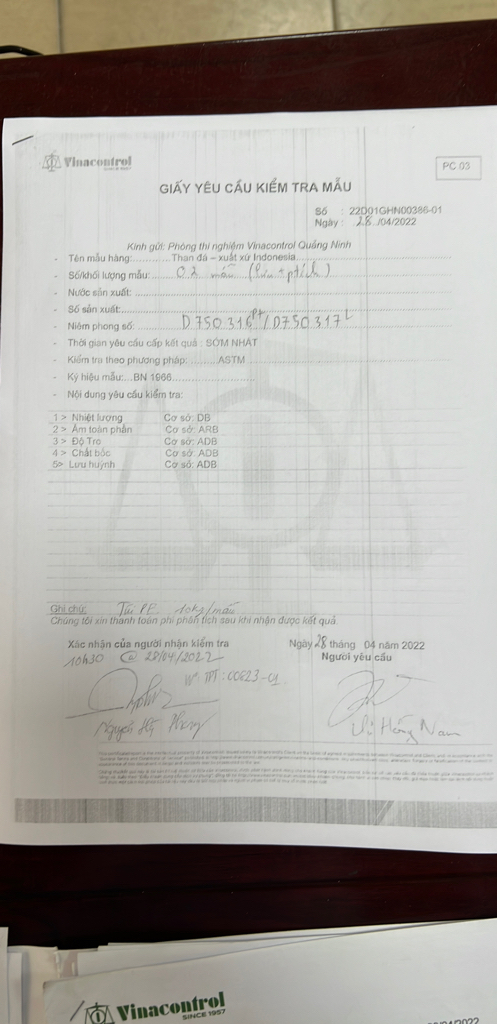 Vinacontrol
SINCE 1957
PC 03
GIẤY YÊU CẦU KIỂM TRA MẪU
Số : 22D01GHN00386-01
Ngày : 28 /04/2022
Kính gửi: Phòng thí nghiệm Vinacontrol Quảng Ninh
- Tên mẫu hàng:.........Than đá – xuất xứ Indonesia
- Số/khối lượng mẫu: 02 mẫu (lưu + ptích)
- Nước sản xuất:
- Số sản xuất:
- Niêm phong số: D750316 Pt / D750317 L
- Thời gian yêu cầu cấp kết quả : SỚM NHẤT
- Kiểm tra theo phương pháp:.........ASTM
- Ký hiệu mẫu:...BN 1966
- Nội dung yêu cầu kiểm tra:
1 > Nhiệt lượng Cơ sở: DB
2 > Ẩm toàn phần Cơ sở: ARB
3 > Độ Tro Cơ sở: ADB
4 > Chất bốc Cơ sở: ADB
5> Lưu huỳnh Cơ sở: ADB
Ghi chú: Túi PE 10kg/mẫu
Chúng tôi xin thanh toán phí phân tích sau khi nhận được kết quả.
Xác nhận của người nhận kiểm tra Ngày 28 tháng 04 năm 2022
10h30 @ 28/04/2022 Người yêu cầu
TPT: 00623-01
Hồng Nam
Vinacontrol
SINCE 1957
/04/2022